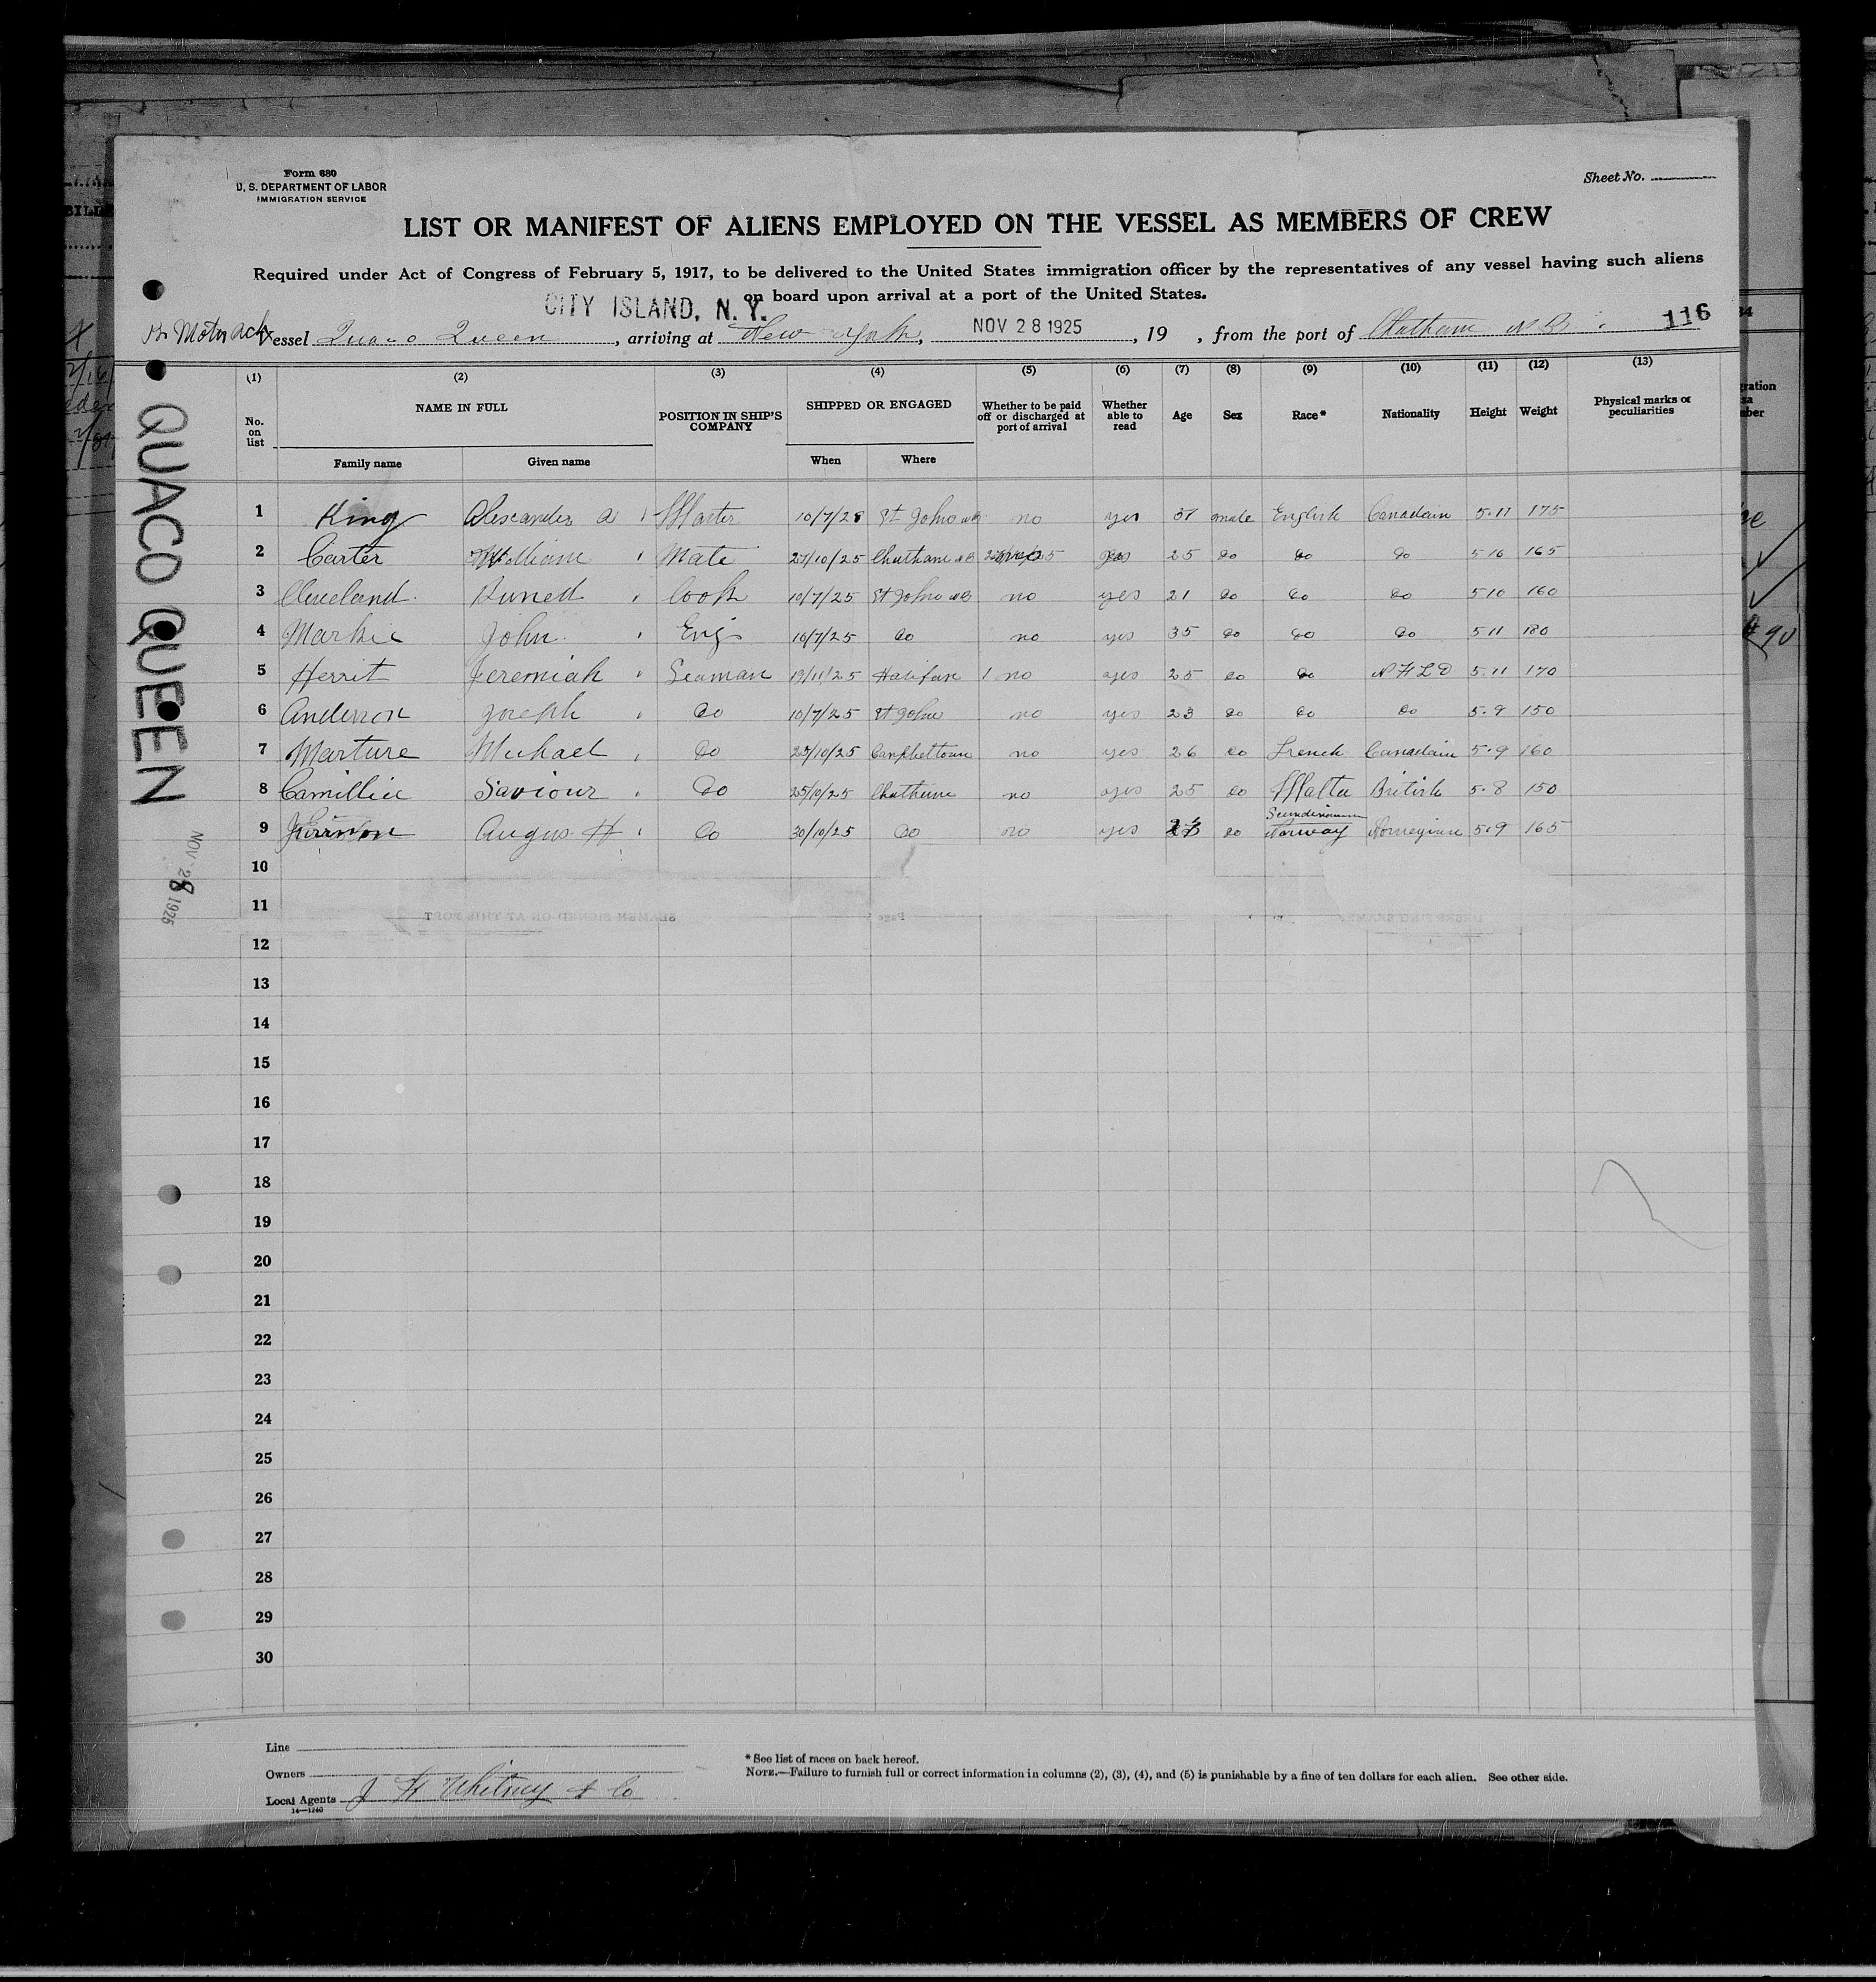 Form 680
U. S. DEPARTMENT OF LABOR
IMMIGRATION SERVICE
Sheet No.
LIST OR MANIFEST OF ALIENS EMPLOYED ON THE VESSEL AS MEMBERS OF CREW
Required under Act of Congress of February 5, 1917, to be delivered to the United States immigration officer by the representatives of any vessel having such aliens
on board upon arrival at a port of the United States.
CITY ISLAND, N. Y.
116
Vessel Quaco Queen, arriving at New York, NOV 28 1925, 19 , from the port of Chatham N B
QUACO QUEEN
NOV 28 1925
(1) (2) (3) (4) (5) (6) (7) (8) (9) (10) (11) (12) (13)
No. on list NAME IN FULL POSITION IN SHIP'S COMPANY SHIPPED OR ENGAGED Whether to be paid off or discharged at port of arrival Whether able to read Age Sex Race* Nationality Height Weight Physical marks or peculiarities
Family name Given name When Where
1 King Alexander A Master 10/7/25 St John NB no yes 37 male English Canadain 5.11 175
2 Carter William Mate 27/10/25 Chatham NB yes 25 do do do 5 10 165
3 Cleveland Cook 10/7/25 St John NB no yes 21 do do do 5 10 160
4 John Eng 10/7/25 do no yes 35 do do do 5 11 180
5 Herrit Jeremiah Seaman 19/11/25 Halifax no yes 25 do do NFLD 5.11 170
6 Anderson Joseph do 10/7/25 St John no yes 23 do do do 5.9 150
7 Marture Michael do 25/10/25 Campbeltown no yes 26 do French Canadain 5.9 160
8 Camillie Saviour do 25/10/25 Chatham no yes 25 do Malta British 5.8 150
9 Angus H do 30/10/25 do no yes do Norway Norwegian 5.9 165
10
11
12
13
14
15
16
17
18
19
20
21
22
23
24
25
26
27
28
29
30
Line
Owners
Local Agents J H Whitney & Co
14—1240
* See list of races on back hereof.
NOTE.—Failure to furnish full or correct information in columns (2), (3), (4), and (5) is punishable by a fine of ten dollars for each alien. See other side.